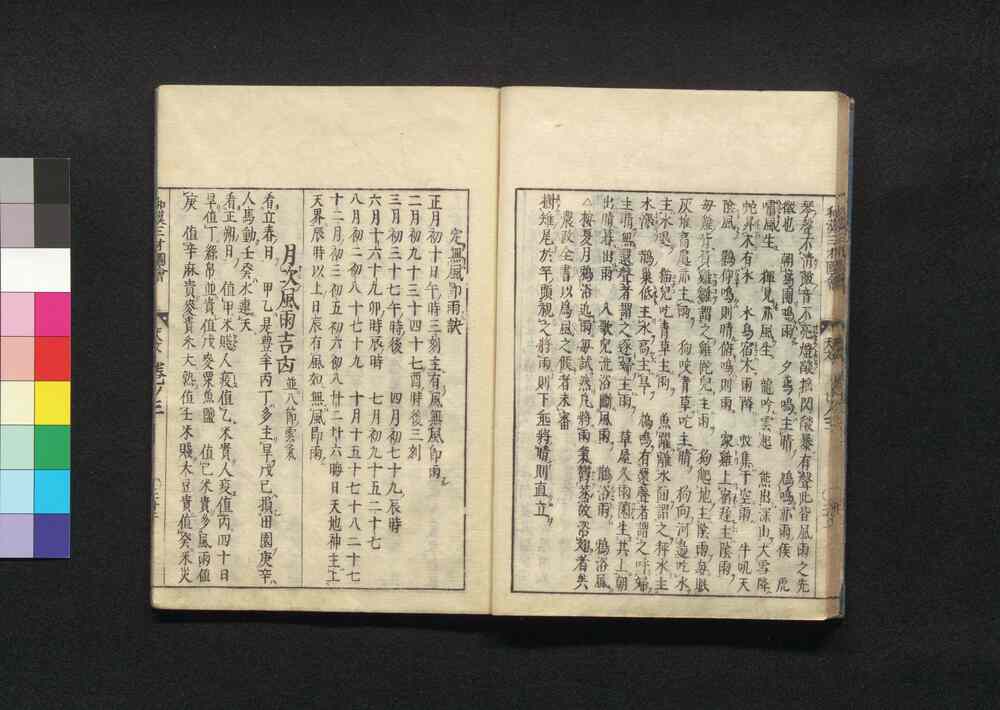 琴聲不清鼓音不亮燈醆㧓閃醆暴有聲此皆風雨之先
徵也　朝鳶鬧鳴雨　夕鳶鳴主晴　鳩鳴亦雨候　虎
嘯風生　亦風生　龍吟雲起　熊出深山大雪降
蛇昇木有水　水鳥宿木雨降　蚊集于空雨　牛吼天
陰風　鸛仰鳴則晴俯鳴則雨　家雞上宿遲主陰雨
母雞背負雞雛謂之雞陀兒主雨　狗爬地主陰雨每眠
灰堆高處亦主雨　狗咬青草吃主晴　狗向河邊吃水
主水退　猫兒吃青草主雨　魚躍離水面謂之秤水主
水漲　鵲巢低主水高主旱　鳩鳴有還聲者謂之呼婦
主晴無還聲者謂之逐婦主雨　草屋久雨菌生其上朝
出晴暮出雨　八歌兒洗浴斷風雨　鵲浴雨　鴉浴風
△按夏月鴉浴近雨每試然凡將雨氣鬱蒸故浴翅者矣
農政全書以爲風之候者未審
雉尾於竿頭視之將雨則下垂將晴則直立
定無風即雨訣
正月初十日午時三刻主有風無風即雨
二月初九十三十四十七酉時後三刻
三月初三十七午時後　四月初七十九辰時
六月十六十九卯時辰時　七月初九十五二十七
八月初二初八十七十九　十月十五十七十八二十七
十二月初三初五初六初八廿二廿六晦日天地神主上
天界辰時以上日辰有風如無風即雨
月次風雨吉凶　並八節雲氣
看立春日　甲乙是豊年丙丁多主旱戊己損田園庚辛
人馬動壬癸水連天
看正朔日　值甲米賤人疫值乙米貴人疫值丙四十日
旱值丁絲帛並貴值戊麥粟魚鹽　值己米貴多風雨值
庚　值辛麻貴麥貴禾大熟值壬米賤木豆貴值癸禾災
和漢三才圖會